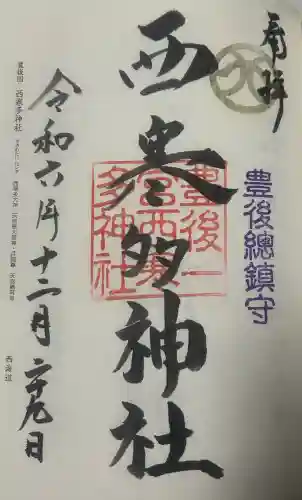 奉拝
豊後總鎮守
西寒多神社
豊後一
宮西寒
多神社
令和六年十二月二十九日
豊後国 西寒多神社
西海道